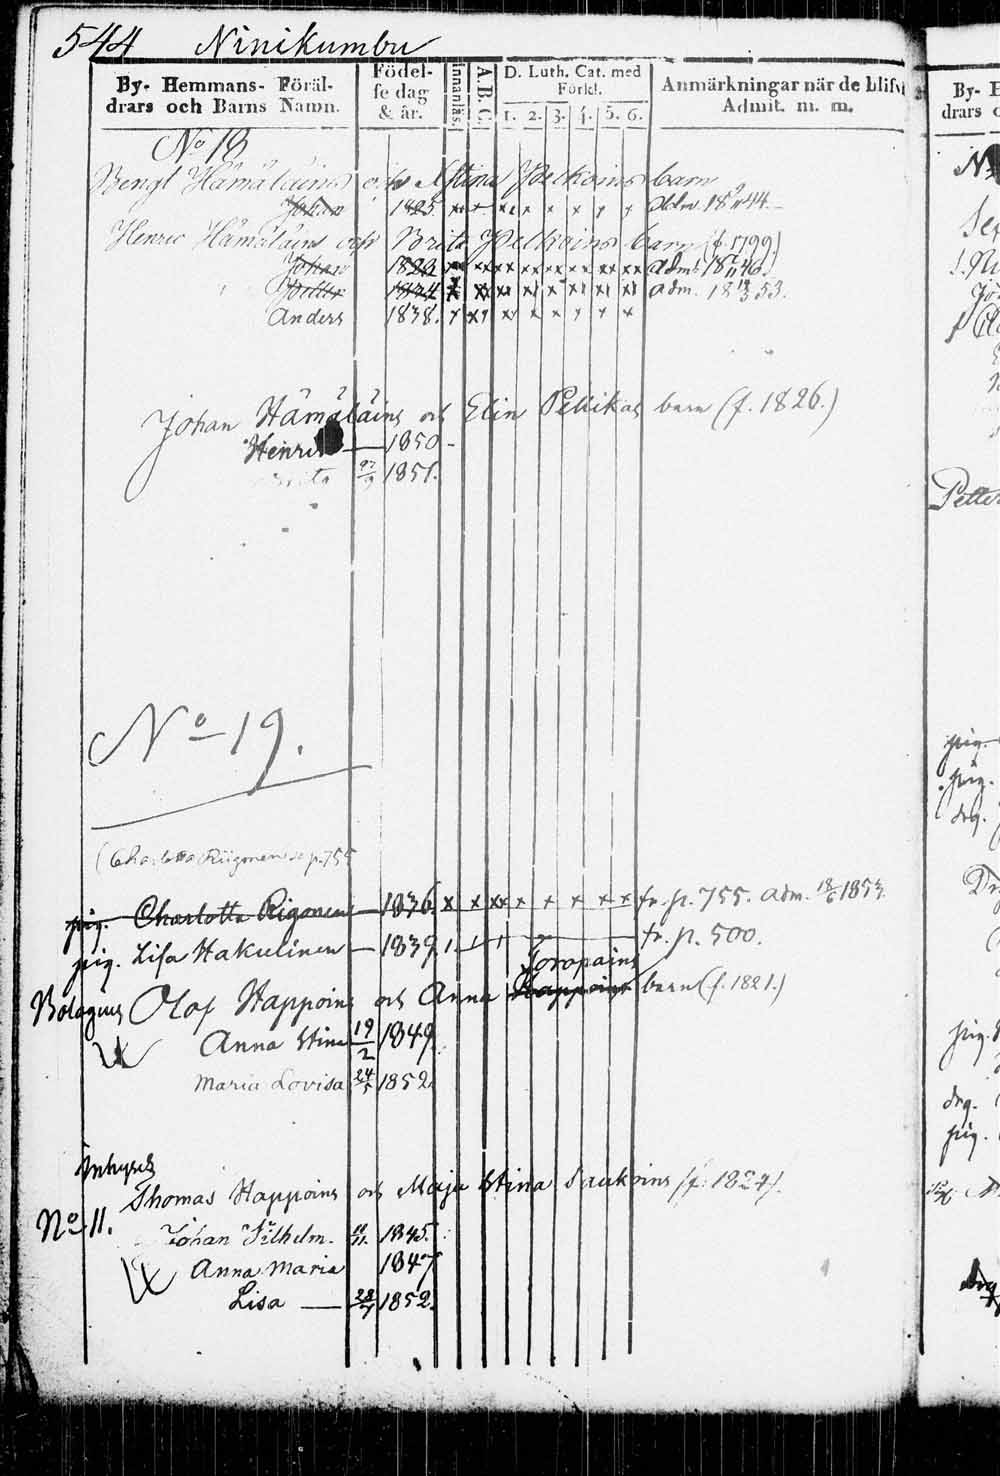 544 Ninikumbu
By- Hemmans- Föräldrars och Barns Namn.
Födelse dag & år.
Innanläs.
A.B.C.
D. Luth. Cat. med Förkl.
1. 2. 3. 4. 5. 6.
Anmärkningar när de blifvi
Admit. m. m.
By- H
drars o
No 18
Bengt Hämäläins och Stina Pelkoins barn
Johan 1825. x + x x x x x x adm. 18 44.
Henric Hämäläins och Brita Pelkoins barn (f. 1799)
Johan 1823 x xx xx xx xx xx xx xx adm. 18 46.
Petter 1824 x xx xx xx xx xx xx xx adm. 18 53.
Anders 1838. x xx xx x x x x x
Johan Hämäläins och Elin Pellikas barn (f. 1826.)
Henric — 1850
Brita 27/9 1851.
No 19.
(Charlotta Riigonen se p. 755
pig. Charlotta Rigonen — 1836. x x xx x x x x x fr. p. 755. adm. 18/6 1853.
pig. Lisa Hakulinen — 1839. fr. p. 500.
Toropains
Bolagsm Olof Happoins och Anna Happoins barn (f. 1821.)
Anna Stina 19/2 1849.
Maria Lovisa 24/5 1852.
Inhyses
Thomas Happoins och Maja Stina Saukoins (f. 1824).
No 11.
Johan Wilhelm. 11/11. 1845.
Anna Maria 1847
Lisa — 28/7 1852.
Petter
pig.
pig.
drg.
pig.
drg.
pig.